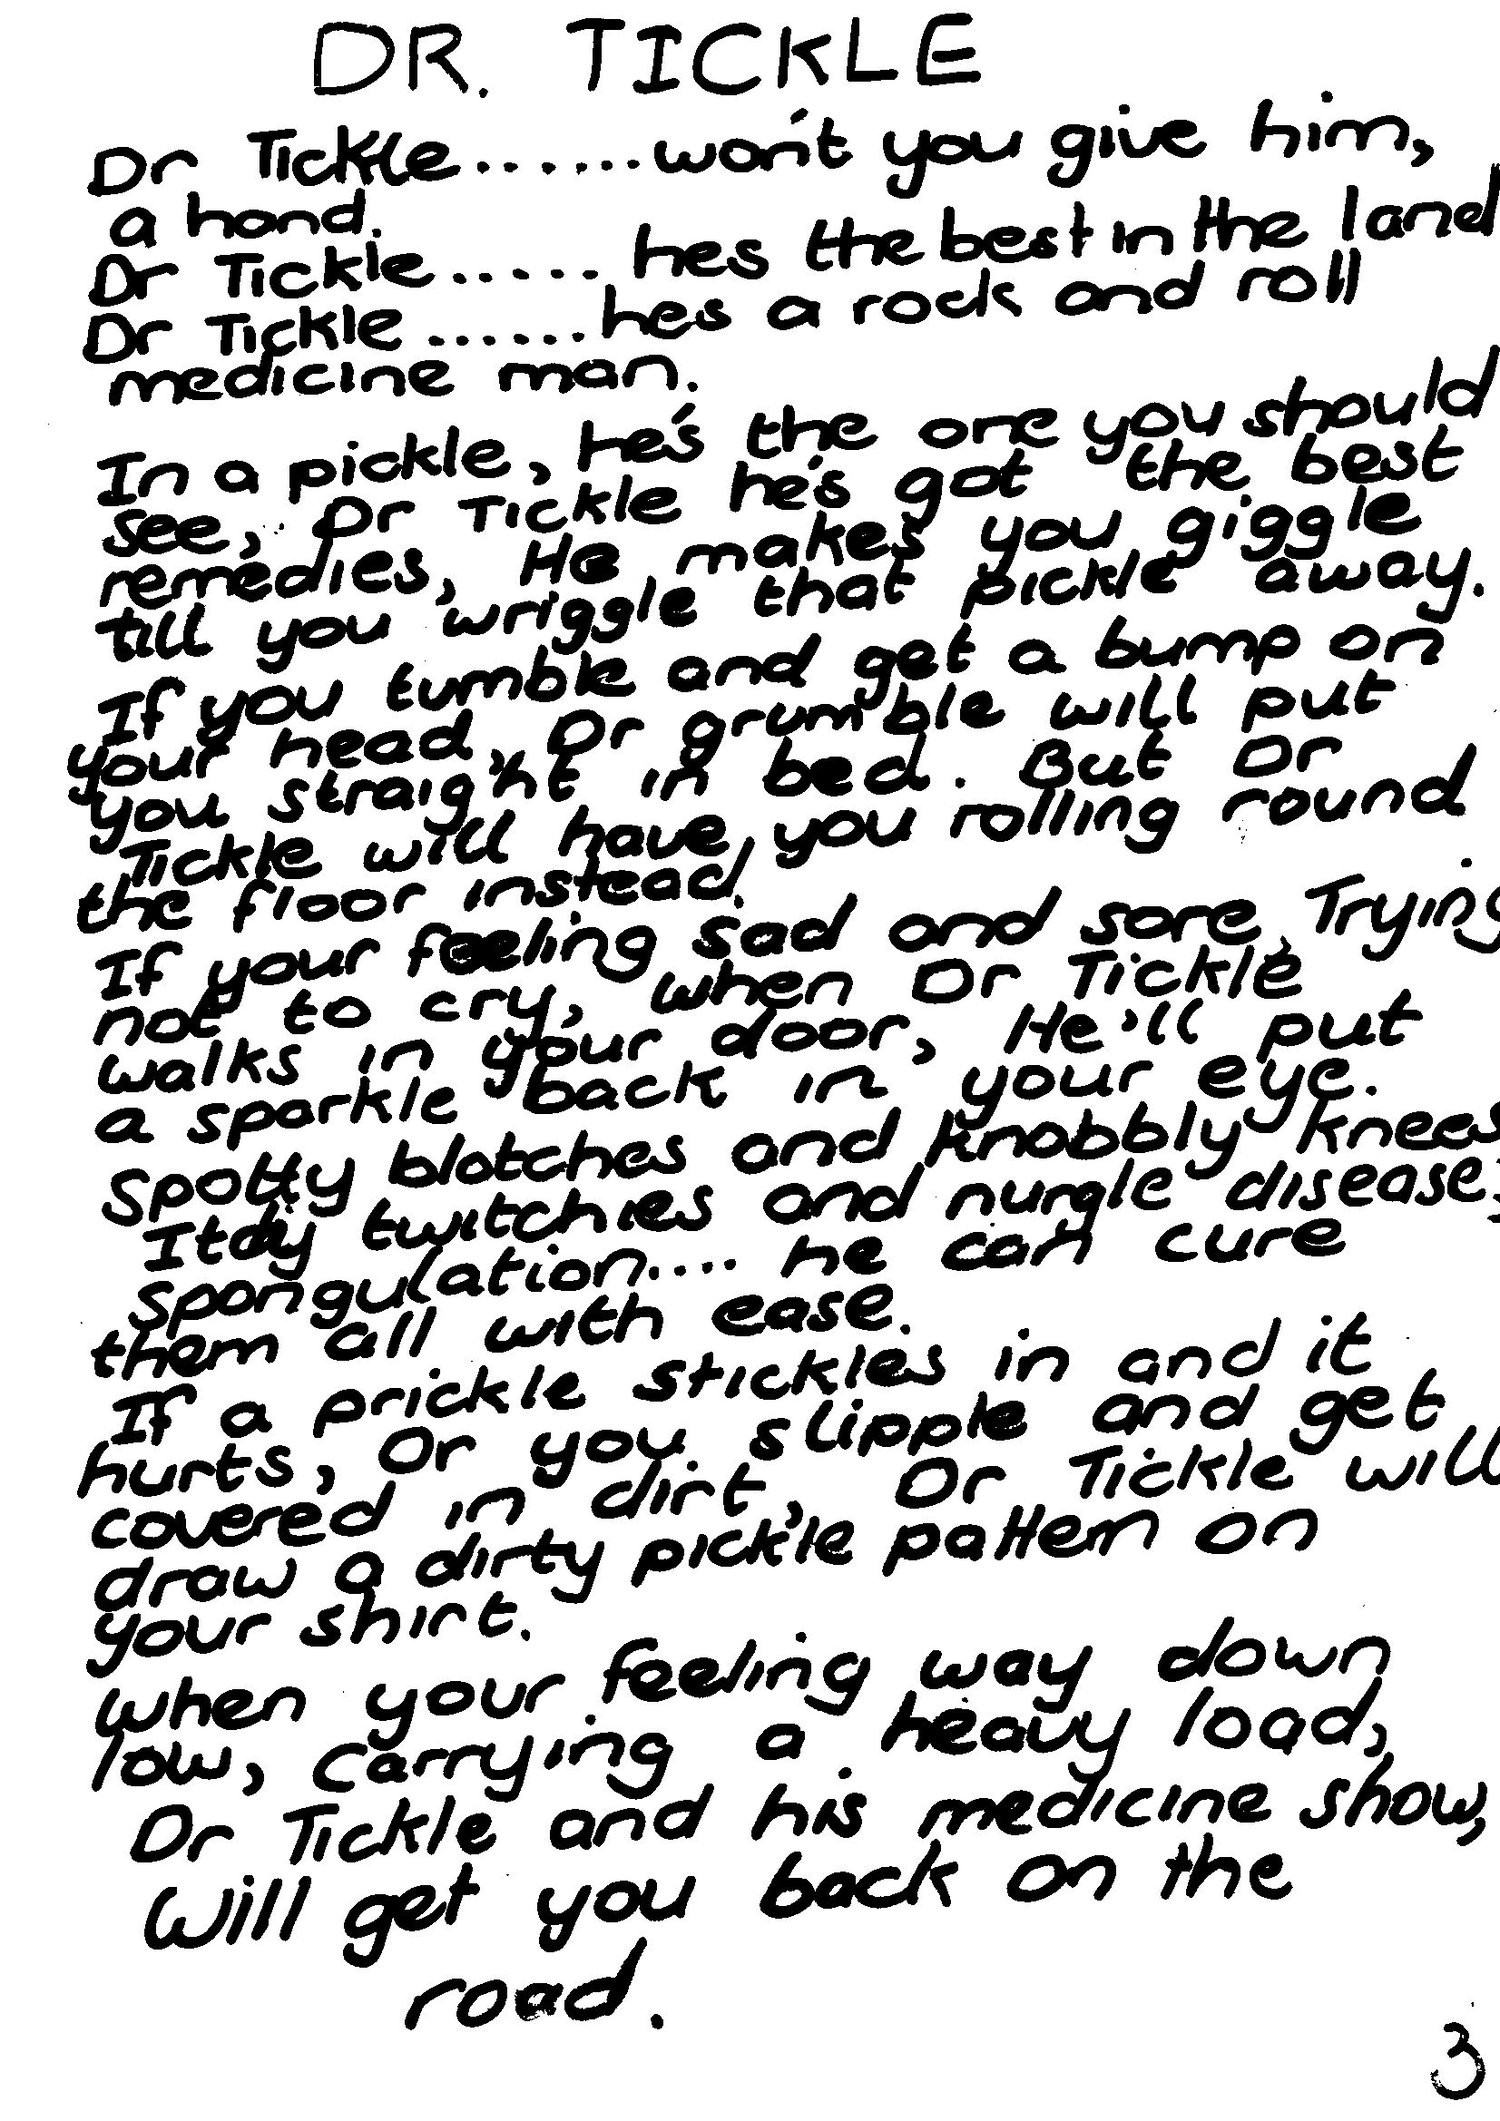 DR. TICKLE
Dr Tickle.......won't you give him,
a hand.
Dr Tickle..... hes the best in the land
Dr Tickle......hes a rock and roll
medicine man.
In a pickle, he's the one you should
see, Dr Tickle he's got the best
remedies, He makes you giggle
till you wriggle that pickle away.
If you tumble and get a bump on
your head, Dr grumble will put
you straight in bed. But Dr
Tickle will have you rolling round
the floor instead.
If your feeling sad and sore, Trying
not to cry, when Dr Tickle
walks in your door, He'll put
a sparkle back in your eye.
Spotty blotches and knobbly knees
Itchy twitchies and nurgle disease,
Spongulation.... he can cure
them all with ease.
If a prickle stickles in and it
hurts, Or you slipple and get
covered in dirt, Dr Tickle will
draw a dirty pickle pattern on
your shirt.
when your feeling way down
low, carrying a heavy load,
Dr Tickle and his medicine show,
Will get you back on the
road.
3